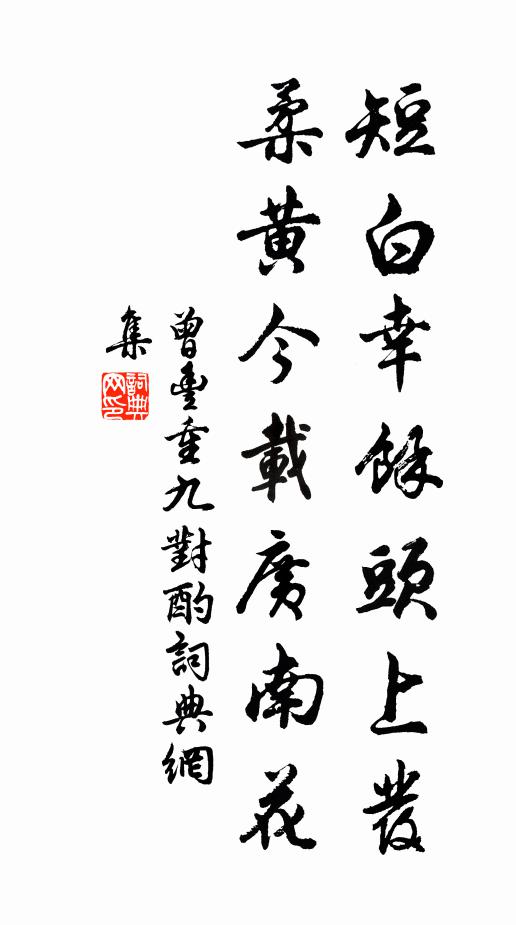 短白幸餘頭上發
柔黄今載廣南花
曾豊重九對酌詞典網
集
詞典
网印